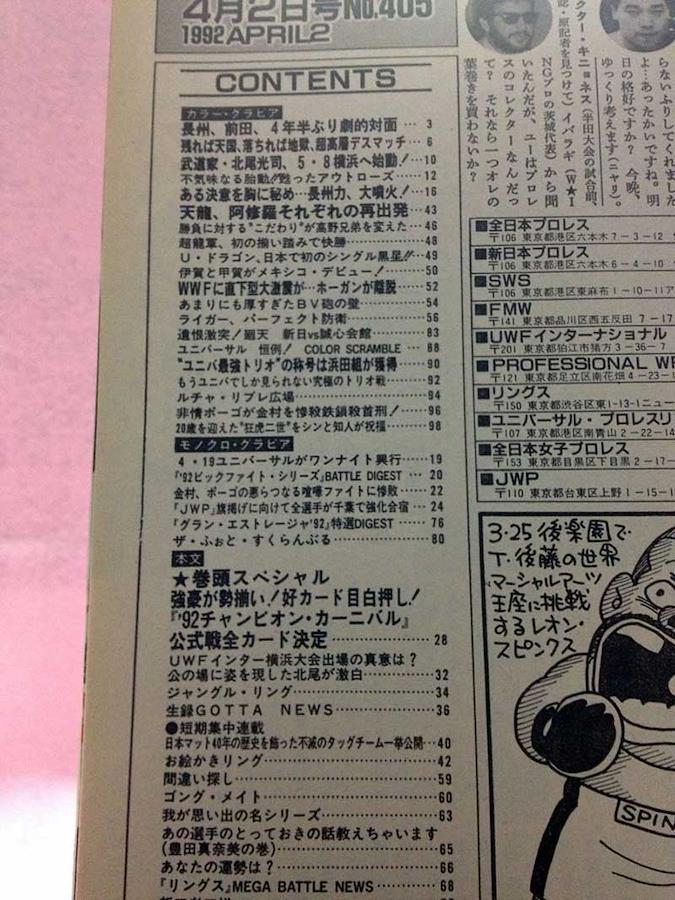 4月2日号No.405
1992APRIL2
CONTENTS
カラー・グラビア
長州、前田、4年半ぶり劇的対面… 3
残れば天国、落ちれば地獄、超高層デスマッチ… 6
武道家・北尾光司、5・8横浜へ始動!…10
不気味なる胎動!!甦ったアウトローズ……12
ある決意を胸に秘め…長州力、大噴火!…16
天龍、阿修羅それぞれの再出発…43
勝負に対する"こだわり"が高野兄弟を変えた…46
超龍軍、初の揃い踏みで快勝……48
U・ドラゴン、日本で初のシングル黒星!!…49
伊賀と甲賀がメキシコ・デビュー!……50
WWFに直下型大激震が…ホーガンが離脱……52
あまりにも厚すぎたBV砲の壁……54
ライガー、パーフェクト防衛……56
遺恨激突!廻天 新日vs誠心会館……83
ユニバーサル 恒例! COLOR SCRAMBLE…88
"ユニバ最強トリオ"の称号は浜田組が獲得……90
もうユニバでしか見られない究極のトリオ戦……92
ルチャ・リブレ広場……94
非情ポーゴが金村を惨殺鉄鎖殺首刑!……96
20歳を迎えた"狂虎二世"をシンと知人が祝福……98
モノクロ・グラビア
4・19ユニバーサルがワンナイト興行……19
『'92ビックファイト・シリーズ』BATTLE DIGEST…20
金村、ポーゴの悪らつなる喧嘩ファイトに惨敗……22
『JWP』旗揚げに向けて全選手が千葉で強化合宿…24
『グラン・エストレージャ'92』特選DIGEST……76
ザ・ふぉと・すくらんぶる……80
本文
★巻頭スペシャル
強豪が勢揃い!好カード目白押し!
『'92チャンピオン・カーニバル』
公式戦全カード決定……28
UWFインター横浜大会出場の真意は?
公の場に姿を現した北尾が激白……32
ジャングル・リング……34
生録GOTTA NEWS……36
●短期集中連載
日本マット40年の歴史を飾った不滅のタッグチーム一挙公開…40
お絵かきリング……42
間違い探し……59
ゴング・メイト……60
我が思い出の名シリーズ……63
あの選手のとっておきの話教えちゃいます
(豊田真奈美の巻)……65
あなたの運勢は?……66
『リングス』MEGA BATTLE NEWS……68
らないふりしてくれました
よ…あったかいですね。明
日の格好ですか? 今晩、
ゆっくり考えます(ニヤリ)。
クター・キニョネス(半田大会の試合前、
誌・原記者を見つけて)イバラギ(W★I
NGプロの茨城代表)から聞
いたんだが、ユーはプロレ
スのコレクターなんだっ
て? それなら一つオレの
葉巻きを買わないか?
■全日本プロレス
〒106 東京都港区六本木7-3-12
■新日本プロレス
〒106 東京都港区六本木6-4-10
■SWS
〒106 東京都港区東麻布1-10-11ア
■FMW
〒141 東京都品川区西五反田7-17
■UWFインターナショナル
〒201 東京都狛江市猪方3-36-7
■PROFESSIONAL WR
〒121 東京都足立区南花畑4-23-
■リングス
〒150 東京都渋谷区東1-13-1ニュー
■ユニバーサル・プロレスリ
〒107 東京都港区南青山2-22-14
■全日本女子プロレス
〒153 東京都目黒区下目黒2-17-
■JWP
〒110 東京都台東区上野1-15-1
3・25後楽園で
T・後藤の世界
マーシャルアーツ
王座に挑戦
するレオン・
スピンクス
SPIN